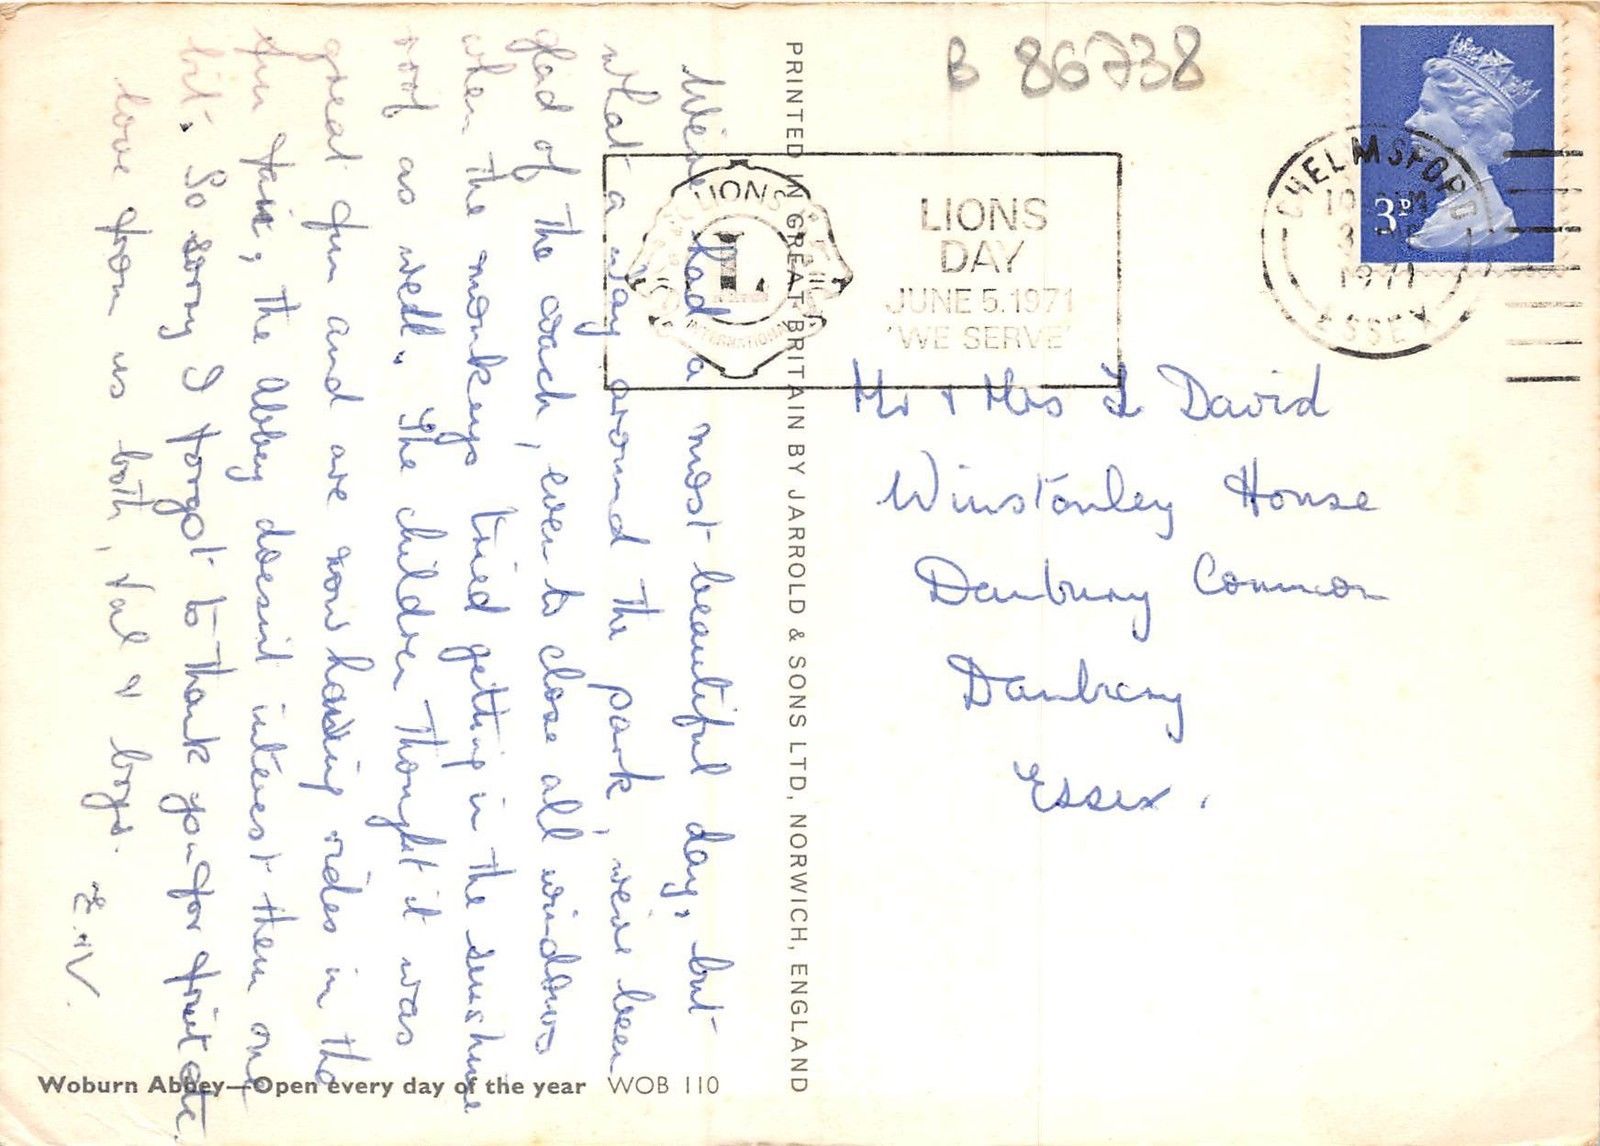 Weive had a most beautiful day, but
what a day around the park, weive been
glad of the coach, even to close all windows
when the monkeys tried getting in the sunshine
roof as well. The children thought it was
great fun and are now having rides in the
fun fair, the Abbey doesnt interest them one
bit. So sorry I forgot to thank you for fruit etc.
love from us both, Val & boys.
E.V.
Woburn Abbey—Open every day of the year WOB 110
PRINTED IN GREAT BRITAIN BY JARROLD & SONS LTD, NORWICH, ENGLAND
B 86738
LIONS
L
INTERNATIONAL
LIONS
DAY
JUNE 5.1971
'WE SERVE'
CHELMSFORD
1971
ESSEX
3P
Mr & Mrs L David
Winstanley House
Danbury Common
Danbury
Essex.